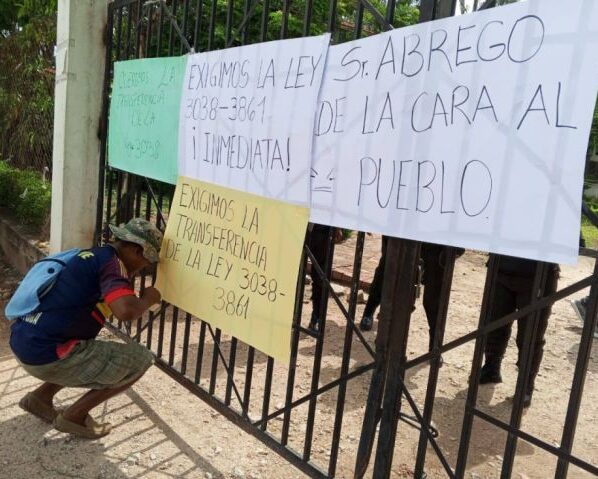 QUEREMOS LA
TRANSFERENCIA
DE LA
EXIGIMOS LA LEY
3038-3861
¡INMEDIATA!
Sr. ABREGO
DE LA CARA AL
PUEBLO.
EXIGIMOS LA
TRANSFERENCIA
DE LA LEY 3038-
3861